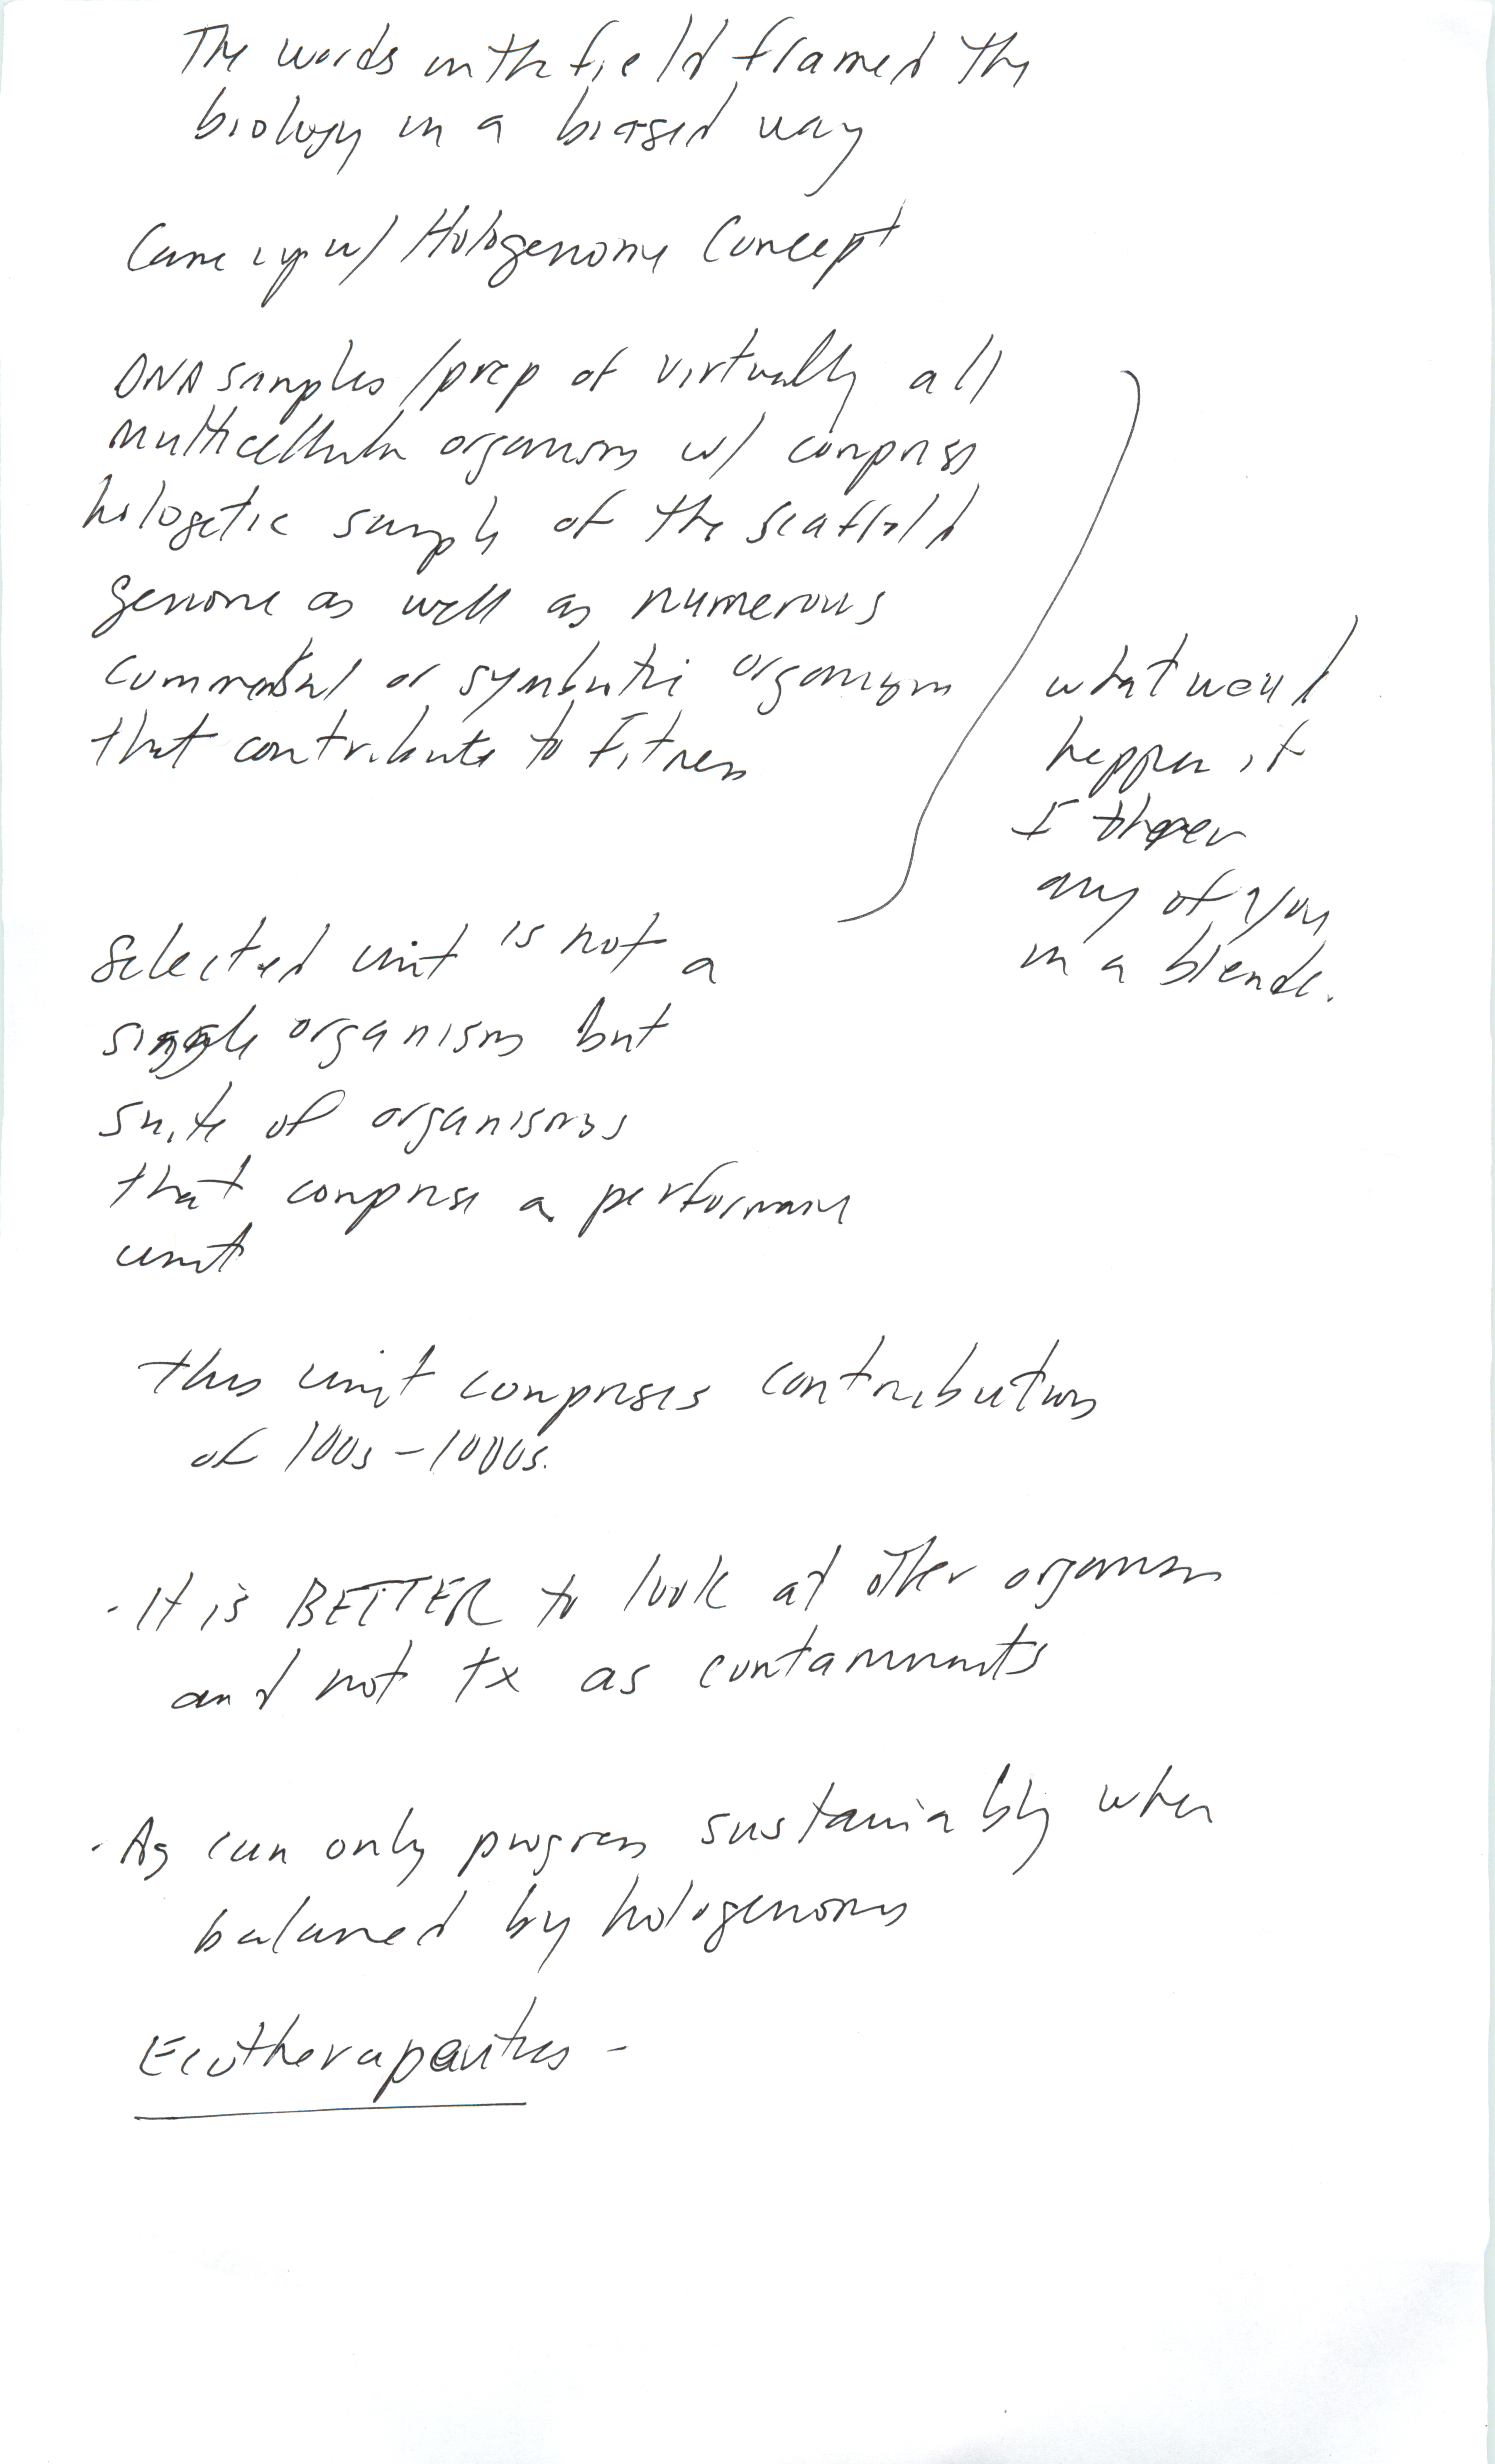 The words in the field framed the
biology in a biased way
Came up w/ Hologenome Concept
DNA samples/prep of virtually all
multicellular organisms w/ comprises
sample of the scaffold
genome as well as numerous
commensal or symbiotic organisms
that contribute to Fitness
what would
happen if
I threw
any of you
in a blender.
Selected unit is not a
single organism but
suite of organisms
that comprise a performance
unit
this unit comprises contributions
of 100s - 1000s.
- It is BETTER to look at other organisms
and not tx as contaminants
- Ag can only progress sustainably when
balanced by hologenomes
Ecotherapeutics -